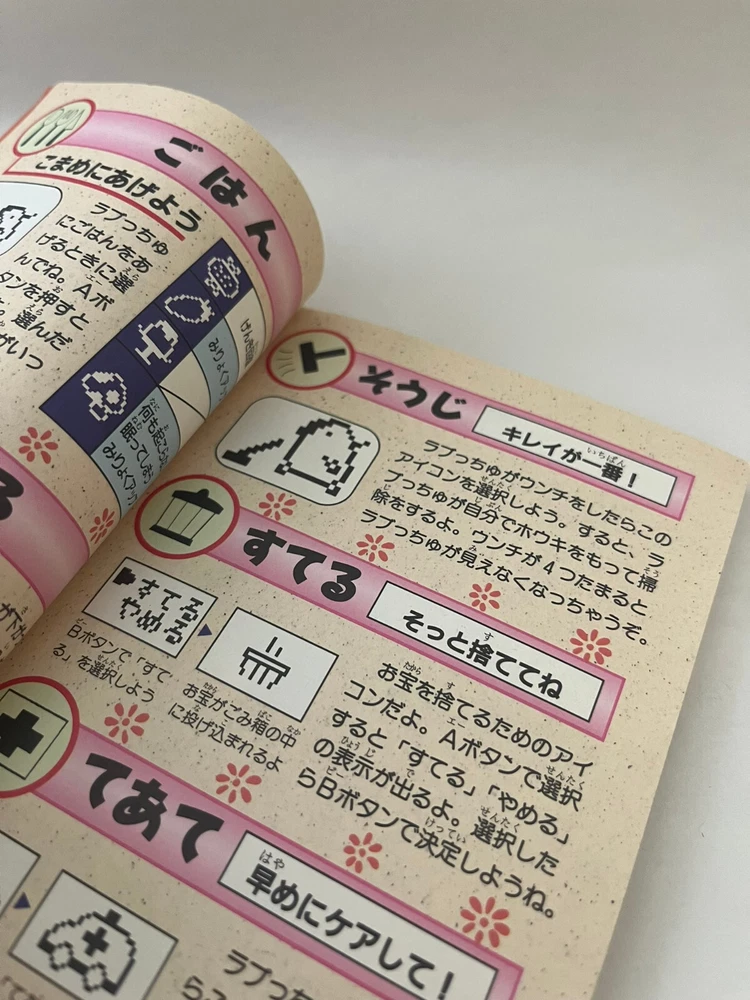 ごはん
こまめにあげよう
ラブっちゅ
にごはんをあ
げるときに選
んでね。Aボ
タンを押すと
選んだ
がいつ
げんき
みりょく
何も起こ
眠ってしま
みりょく
そうじ
キレイが一番！
ラブっちゅがウンチをしたらこの
アイコンを選択しよう。すると、ラ
ブっちゅが自分でホウキをもって掃
除をするよ。ウンチが4つたまると
ラブっちゅが見えなくなっちゃうぞ。
すてる
そっと捨ててね
すてる
やめる
Bボタンで「すて
る」を選択しよう
お宝がごみ箱の中
に投げ込まれるよ
お宝を捨てるためのアイ
コンだよ。Aボタンで選択
すると「すてる」「やめる」
の表示が出るよ。選択した
らBボタンで決定しようね。
てあて
早めにケアして！
ラブっち